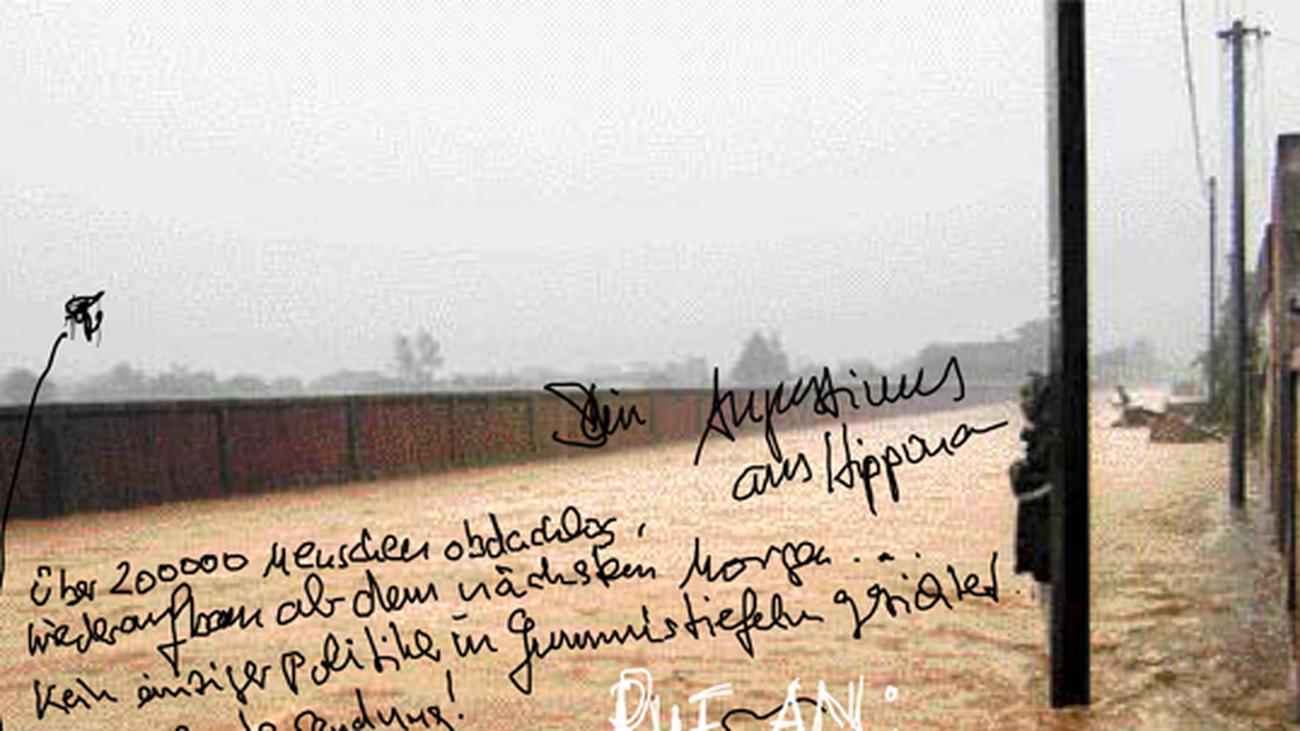 Dein Augustinus
aus Hippona
über 200000 Menschen obdachlos,
Wiederaufbau ab dem nächsten Morgen...
Kein einziger Politiker in Gummistiefeln gesichtet.
Sendung!
RUF AN: